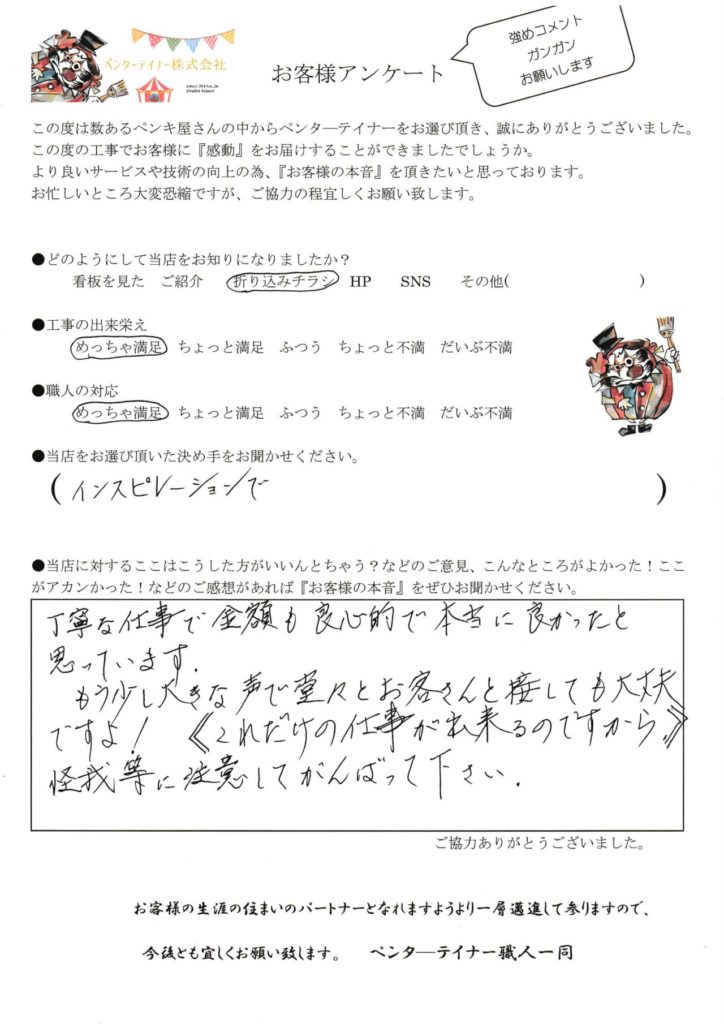 ペンターテイナー株式会社
お客様アンケート
強めコメント
ガンガン
お願いします
この度は数あるペンキ屋さんの中からペンタ―テイナーをお選び頂き、誠にありがとうございました。
この度の工事でお客様に『感動』をお届けすることができましたでしょうか。
より良いサービスや技術の向上の為、『お客様の本音』を頂きたいと思っております。
お忙しいところ大変恐縮ですが、ご協力の程宜しくお願い致します。
●どのようにして当店をお知りになりましたか？
看板を見た ご紹介 折り込みチラシ HP SNS その他( )
●工事の出来栄え
めっちゃ満足 ちょっと満足 ふつう ちょっと不満 だいぶ不満
●職人の対応
めっちゃ満足 ちょっと満足 ふつう ちょっと不満 だいぶ不満
●当店をお選び頂いた決め手をお聞かせください。
( インスピレーションで )
●当店に対するここはこうした方がいいんとちゃう？などのご意見、こんなところがよかった！ここ
がアカンかった！などのご感想があれば『お客様の本音』をぜひお聞かせください。
丁寧な仕事で金額も良心的で本当に良かったと
思っています.
もう少し大きな声で堂々とお客さんと接しても大丈夫
ですよ！ 《これだけの仕事が出来るのですから.》
怪我等に注意してがんばって下さい.
ご協力ありがとうございました。
お客様の生涯の住まいのパートナーとなれますようより一層邁進して参りますので、
今後とも宜しくお願い致します。 ペンタ―テイナー職人一同